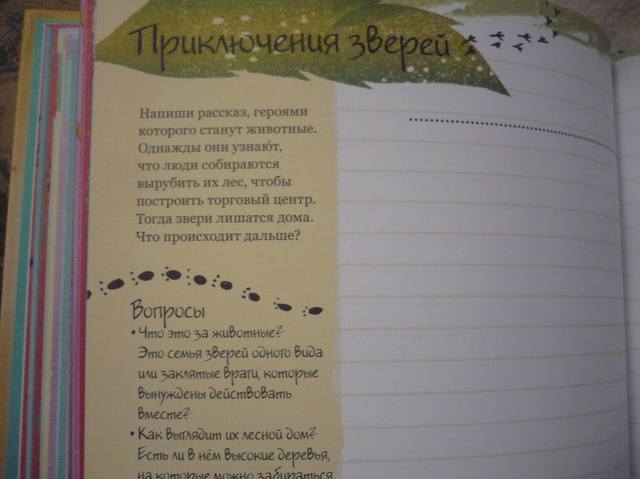 Приключения зверей
Напиши рассказ, героями
которого станут животные.
Однажды они узнают,
что люди собираются
вырубить их лес, чтобы
построить торговый центр.
Тогда звери лишатся дома.
Что происходит дальше?
Вопросы
• Что это за животные?
Это семья зверей одного вида
или заклятые враги, которые
вынуждены действовать
вместе?
• Как выглядит их лесной дом?
Есть ли в нём высокие деревья,
на которые можно забираться